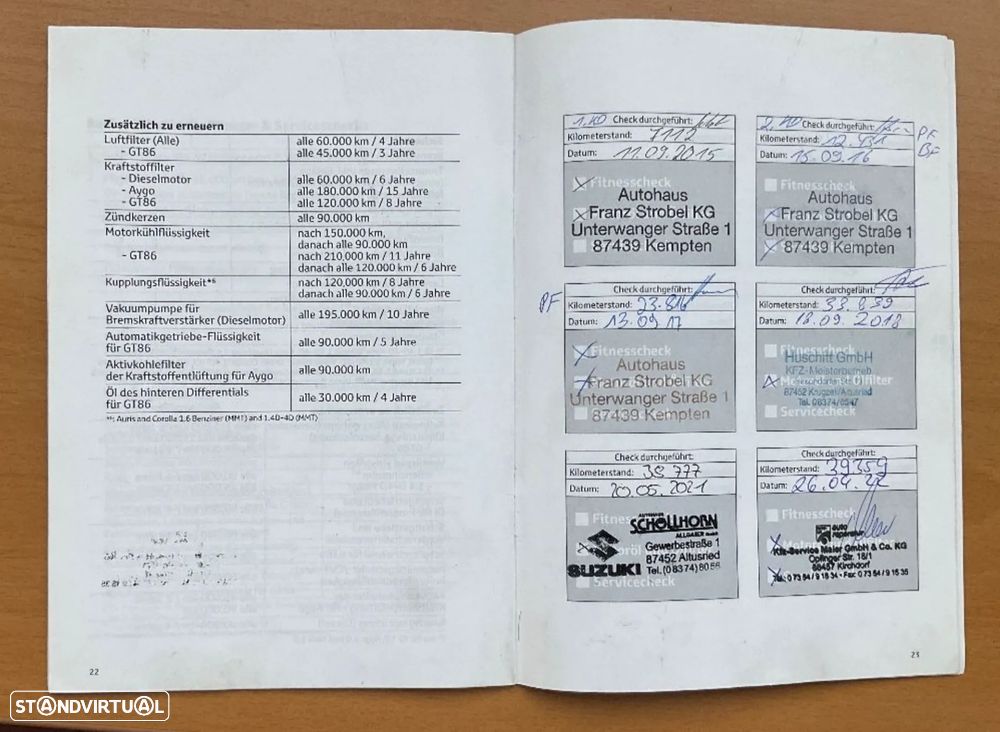 Zusätzlich zu erneuern
Luftfilter (Alle) alle 60.000 km / 4 Jahre
- GT86 alle 45.000 km / 3 Jahre
Kraftstoffilter
- Dieselmotor alle 60.000 km / 6 Jahre
- Aygo alle 180.000 km / 15 Jahre
- GT86 alle 120.000 km / 8 Jahre
Zündkerzen alle 90.000 km
Motorkühlflüssigkeit nach 150.000 km,
danach alle 90.000 km
- GT86 nach 210.000 km / 11 Jahre
danach alle 120.000 km / 6 Jahre
Kupplungsflüssigkeit*⁶ nach 120.000 km / 8 Jahre
danach alle 90.000 km / 6 Jahre
Vakuumpumpe für
Bremskraftverstärker (Dieselmotor) alle 195.000 km / 10 Jahre
Automatikgetriebe-Flüssigkeit
für GT86 alle 90.000 km / 5 Jahre
Aktivkohlefilter
der Kraftstoffentlüftung für Aygo alle 90.000 km
Öl des hinteren Differentials
für GT86 alle 30.000 km / 4 Jahre
*⁶: Auris and Corolla 1.6 Benziner (MMT) and 1.4D-4D (MMT)
22
1,40 Check durchgeführt:
Kilometerstand: 7112
Datum: 11.09.2015
Fitnesscheck
Autohaus
Franz Strobel KG
Unterwanger Straße 1
87439 Kempten
2,40 Check durchgeführt: PF
Kilometerstand: BF
Datum: 15.09.16
Fitnesscheck
Autohaus
Franz Strobel KG
Unterwanger Straße 1
87439 Kempten
Check durchgeführt:
PF Kilometerstand: 23.816
Datum: 13.09.17
Fitnesscheck
Autohaus
Franz Strobel KG
Unterwanger Straße 1
87439 Kempten
Check durchgeführt:
Kilometerstand: 33.839
Datum: 18.09.2018
Fitnesscheck
Huschitt GmbH
KFZ-Meisterbetrieb
87452 Krugzell/Altusried
Tel. 08374/6547
Servicecheck
Check durchgeführt:
Kilometerstand: 38 777
Datum: 20.05.2021
Fitnesscheck
SCHÖLLHORN
ALLGÄUER
Gewerbestraße 1
87452 Altusried
SUZUKI Tel. (08374) 8058
Servicecheck
Check durchgeführt:
Kilometerstand: 39359
Datum: 26.04.22
Fitnesscheck
auto
reparatur
Kfz-Service Maier GmbH & Co. KG
Opfinger Str. 18/1
88457 Kirchdorf
Tel.: 0 73 54 / 9 18 34 · Fax: 0 73 54 / 9 15 35
23
STANDVIRTUAL